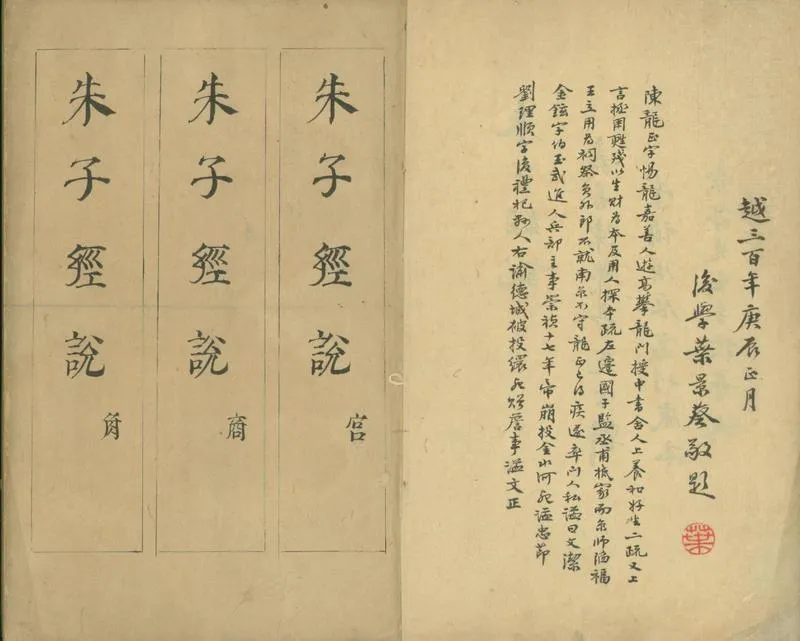 越三百年庚辰正月
後學葉景葵敬題
葉
陳龍正字惕龍嘉善人遊高攀龍門授中書舍人上養和好生二疏又上
言拯困甦殘以生財為本及用人探本疏左遷國子監丞甫抵家而京師陷福
王立用為祠祭員外郎不就南京不守龍正已得疾遂卒門人私謚曰文潔
金鉉字伯玉武進人兵部主事崇禎十七年帝崩投金水河死謚忠節
劉理順字復禮杞縣人右諭德城破投繯死贈詹事謚文正
朱子經說 宮
朱子經說 商
朱子經說 角